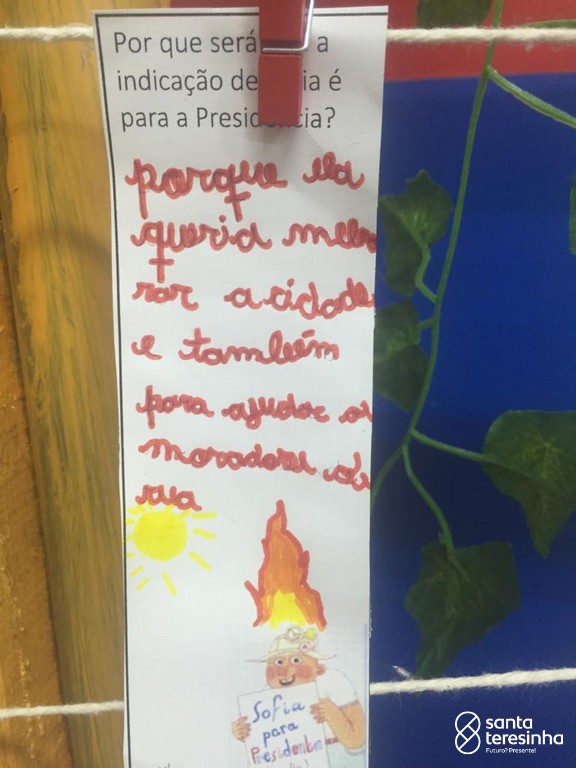 Por que será a
indicação de é
para a Presidência?
porque ela
queria melho
rar a cidade
e também
para ajudar os
moradores de
rua
Sofia
para
Presidenta
santa
teresinha
Futuro? Presente!